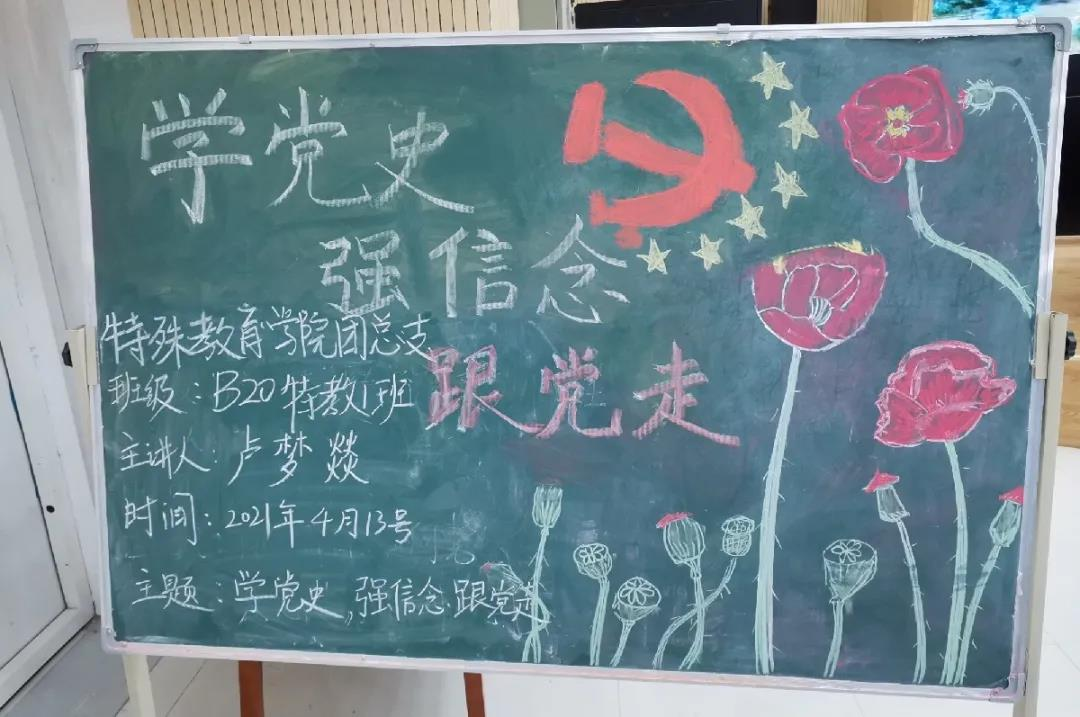 学党史
强信念
跟党走
特殊教育学院团总支
班级：B20特教1班
主讲人：卢梦燚
时间：2021年4月13号
主题：学党史，强信念跟党走